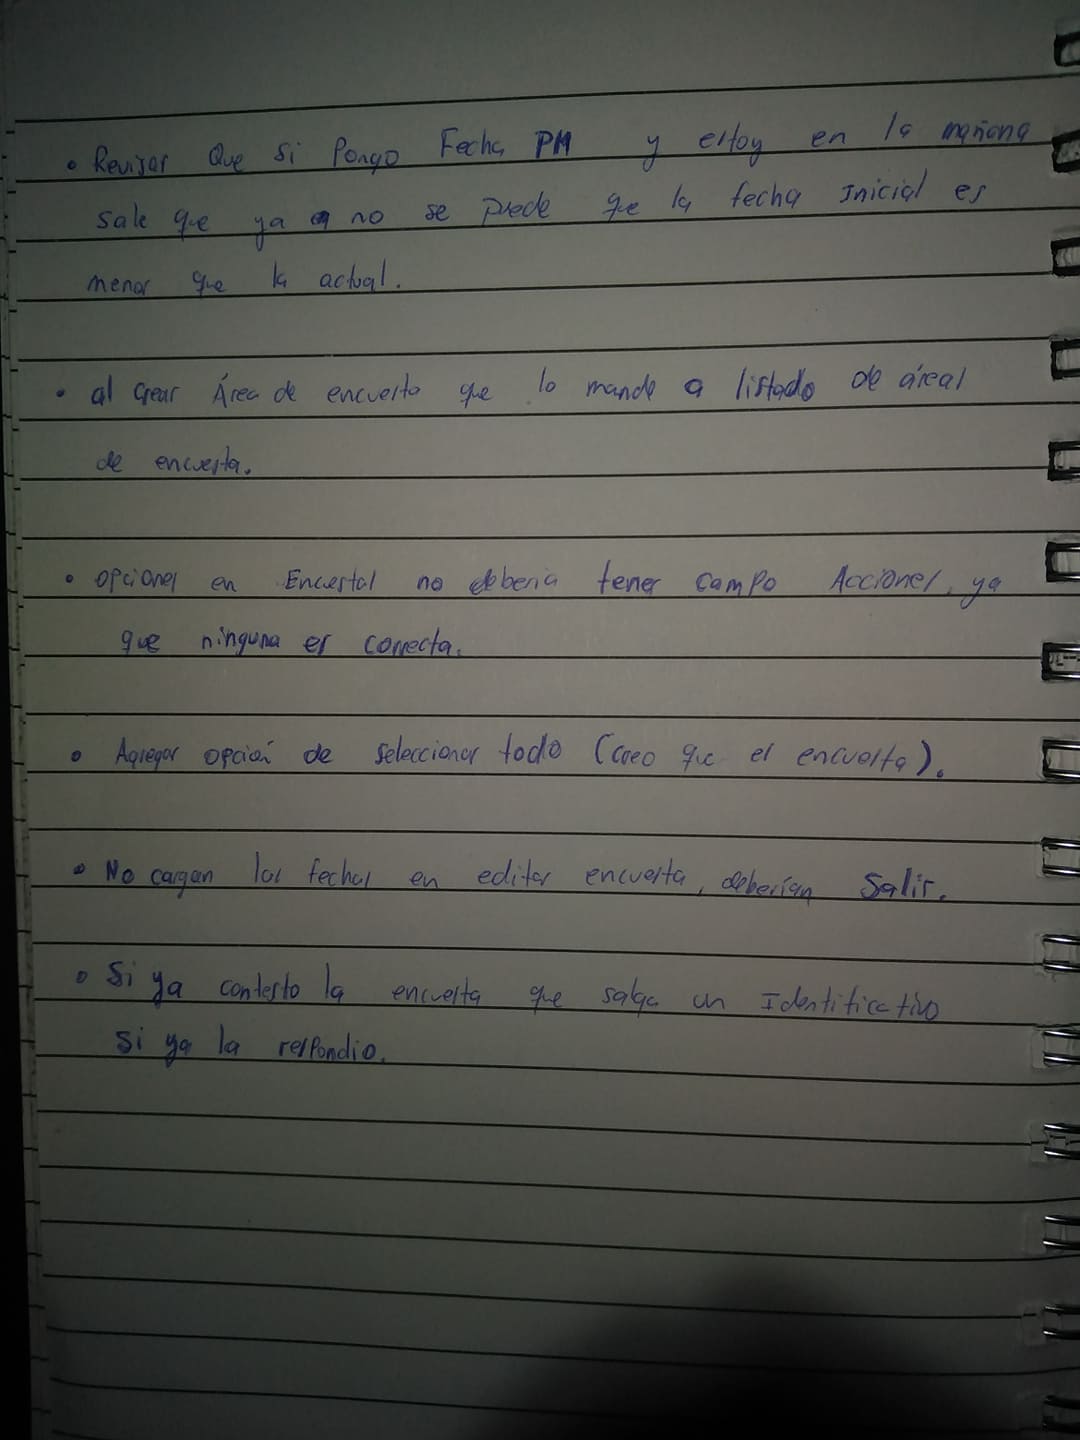 • Revisar Que Si Pongo Fecha PM y estoy en la mañana
sale que ya no se puede que la fecha Inicial es
menor que la actual.
• al crear Área de encuesta que lo mande a listado de áreas
de encuesta.
• opciones en Encuestas no deberia tener campo Acciones, ya
que ninguna es correcta.
• Agregar opción de seleccionar todo (creo que el encuesta).
• No cargan las fechas en editar encuesta, deberían Salir.
• Si ya contesto la encuesta que salga un Identificativo
Si ya la respondio.